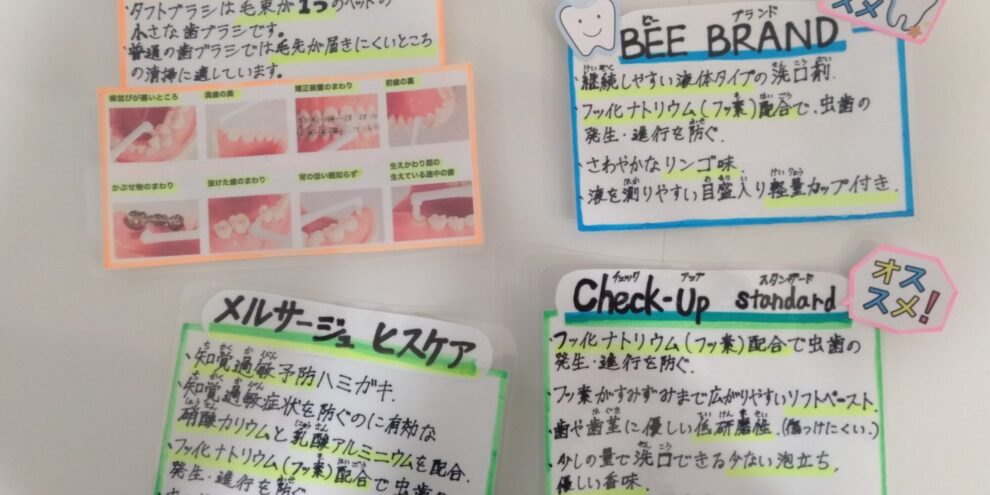 ・タフトブラシは毛束が1つのヘッドの
小さな歯ブラシです。
普通の歯ブラシでは毛先が届きにくいところ
の清掃に適しています。
歯並びが悪いところ
奥歯の奥
矯正装置のまわり
前歯の裏
かぶせ物のまわり
抜けた歯のまわり
背の低い親知らず
生えかわり期の
生えている途中の歯
ビー ブランド
BEE BRAND
スメ
・継続しやすい液体タイプの洗口剤.
けいぞく せんこうざい
・フッ化ナトリウム(フッ素)配合で、虫歯の
発生・進行を防ぐ.
・さわやかなリンゴ味.
・液を測りやすい目盛入り軽量カップ付き.
メルサージュ ヒスケア
・知覚過敏予防ハミガキ.
ちかくかびん
・知覚過敏症状を防ぐのに有効な
ちかくかびん
硝酸カリウムと乳酸アルミニウムを配合.
・フッ化ナトリウム(フッ素)配合で虫歯の
発生・進行を防ぐ
チェック アップ スタンダード
Check-Up standard
オス
スメ!
・フッ化ナトリウム(フッ素)配合で虫歯の
発生・進行を防ぐ.
・フッ素がすみずみまで広がりやすいソフトペースト.
・歯や歯茎に優しい低研磨性.(傷つけにくい.)
・少しの量で洗口できる少ない泡立ち,
優しい香味.